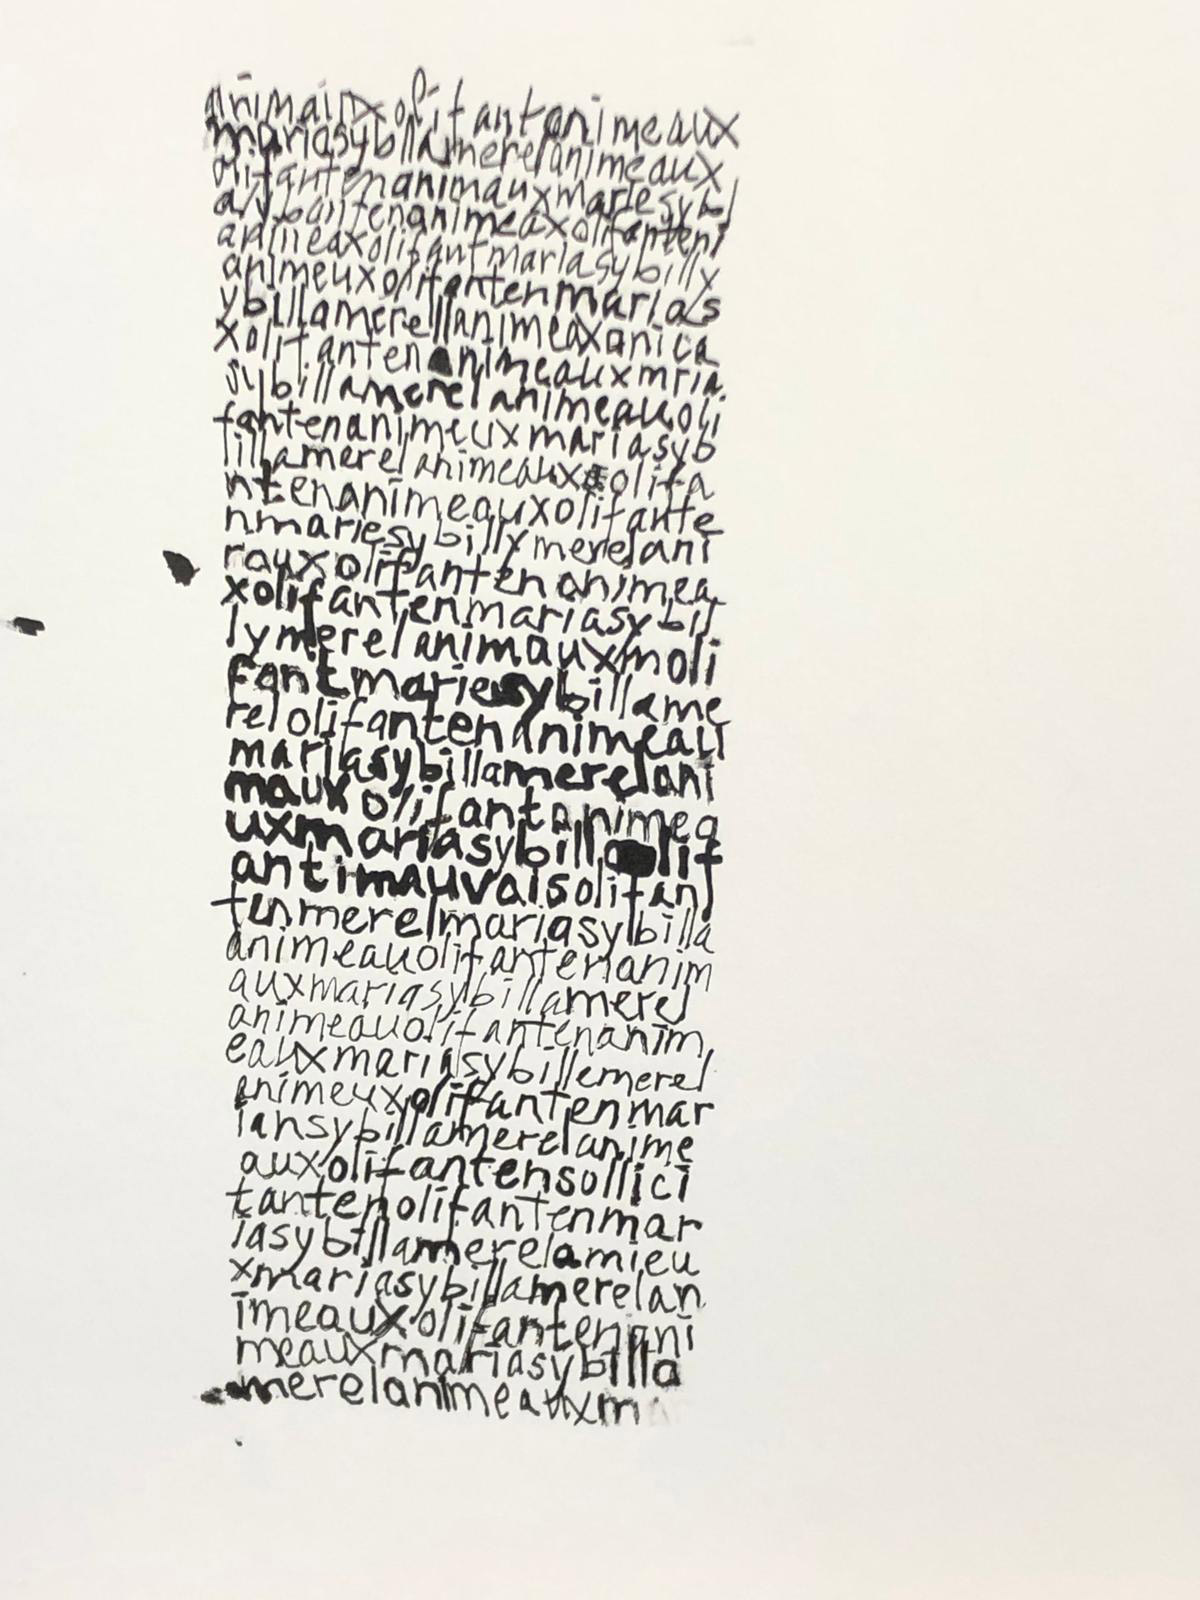 animauxolifantanimeaux
mariasybillamerelanimeaux
olifantenanimauxmariesybl
animeaxolifantmariasybilly
animeuxolifantenmarias
ybillamerellanimeaxanica
xolifantenanimeauxmria
sybillamerelanimeauoli
fantenanimeuxmariasyb
fillamerelanimeauxolifa
ntenanimeauxolifante
nmariesybillymerelani
rauxolifantenanimea
xolifantenmariasybil
lymerelanimauxmoli
fantmariesybillame
relolifantenanimeau
mariasybillamerelani
mauxolifantanimea
uxmariasybillaolif
antimauvaisolifan
tenmerelmariasybilla
animeauolifantenanim
auxmariasybillamerel
animeauolifantenanim
eauxmariasybillemerel
animeuxolifantenmar
iansybillamerelanime
auxolifantensollici
tantenolifantenmar
iasybillamerelamieu
xmariasybillamerelan
imeauxolifantenani
meauxmariasybilla
merelanimeauxm